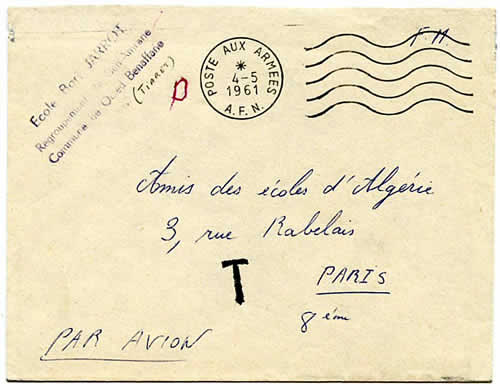 École Bort JARROT
Regroupement
Commune de Oued Benalfane
(TIARET)
POSTE AUX ARMEES
*
4-5
1961
A.F.N.
F.M.
Amis des écoles d'Algérie
3, rue Rabelais
T
PARIS
8ème
PAR AVION